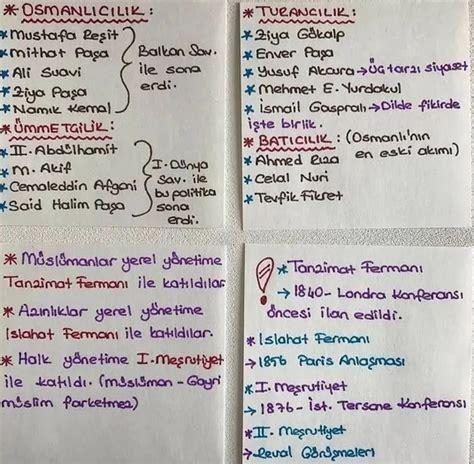 * OSMANLICILIK:
* Mustafa Reşit
* Mithat Paşa
* Ali Suavi
* Ziya Paşa
* Namık Kemal
Balkan Sav.
ile sona
erdi.
* ÜMMETÇİLİK:
* II. Abdülhamit
* M. Akif
* Cemaleddin Afgani
* Said Halim Paşa
I. Dünya
Sav. ile
bu politika
sona
erdi.
* TURANCILIK:
* Ziya Gökalp
* Enver Paşa
* Yusuf Akçura → Üç tarzı siyaset
* Mehmet E. Yurdakul
* İsmail Gaspralı → Dilde fikirde
işte birlik.
* BATICILIK: (Osmanlı'nın
en eski akımı)
* Ahmed Rıza
* Celal Nuri
* Tevfik Fikret
* Müslümanlar yerel yönetime
Tanzimat Fermanı ile katıldılar
* Azınlıklar yerel yönetime
Islahat Fermanı ile katıldılar.
* Halk yönetime I. Meşrutiyet
ile katıldı. (müslüman - Gayri
müslim farketmez)
* Tanzimat Fermanı
→ 1840 - Londra Konferansı
öncesi ilan edildi.
* Islahat Fermanı
→ 1856 Paris Anlaşması
* I. Meşrutiyet
→ 1876 - İst. Tersane Konferansı
* II. Meşrutiyet
→ Reval Görüşmeleri